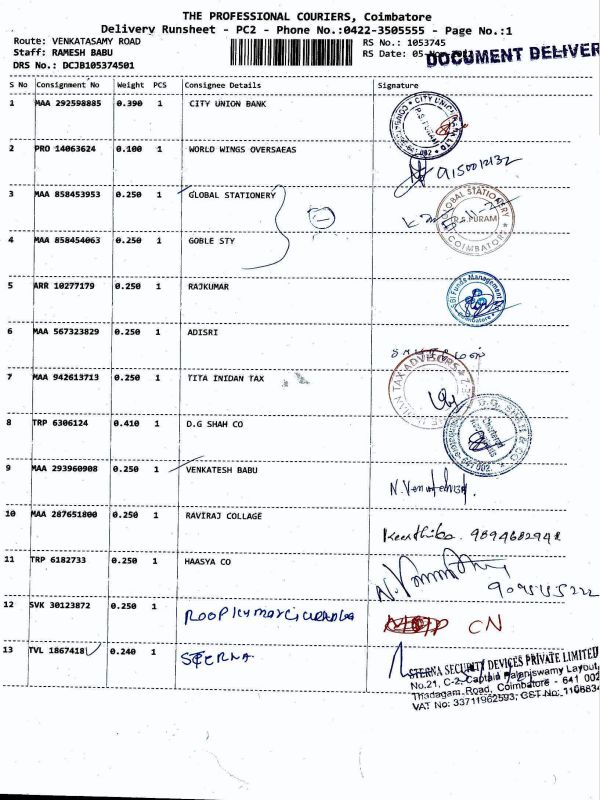 THE PROFESSIONAL COURIERS, Coimbatore
Delivery Runsheet - PC2 - Phone No.:0422-3505555 - Page No.:1
Route: VENKATASAMY ROAD
RS No.: 1053745
Staff: RAMESH BABU
RS Date: 05-
DOCUMENT DELIVER
DRS No.: DCJB105374501
S No Consignment No Weight PCS Consignee Details Signature
1 MAA 292598885 0.390 1 CITY UNION BANK
2 PRO 14063624 0.100 1 WORLD WINGS OVERSAEAS
9150012132
3 MAA 858453953 0.250 1 GLOBAL STATIONERY
GLOBAL STATIONERY
R.S.PURAM
COIMBATORE
4 MAA 858454063 0.250 1 GOBLE STY
5 ARR 10277179 0.250 1 RAJKUMAR
SBI Funds Management
Coimbatore
6 MAA 567323829 0.250 1 ADISRI
7 MAA 942613713 0.250 1 TITA INIDAN TAX
TAX ADVISORS
8 TRP 6306124 0.410 1 D.G SHAH CO
D.G. SHAH & CO
Chartered
641 002
9 MAA 293960908 0.250 1 VENKATESH BABU
10 MAA 287651800 0.250 1 RAVIRAJ COLLAGE
Keerthika. 9894682948
11 TRP 6182733 0.250 1 HAASYA CO
12 SVK 30123872 0.250 1
CN
13 TVL 1867418 0.240 1 STERNA
STERNA SECURITY DEVICES PRIVATE LIMITED
No.21, C-2, Captain Palaniswamy Layout,
Thadagam Road, Coimbatore - 641 002
VAT No: 33711962593, CST No: 1106834